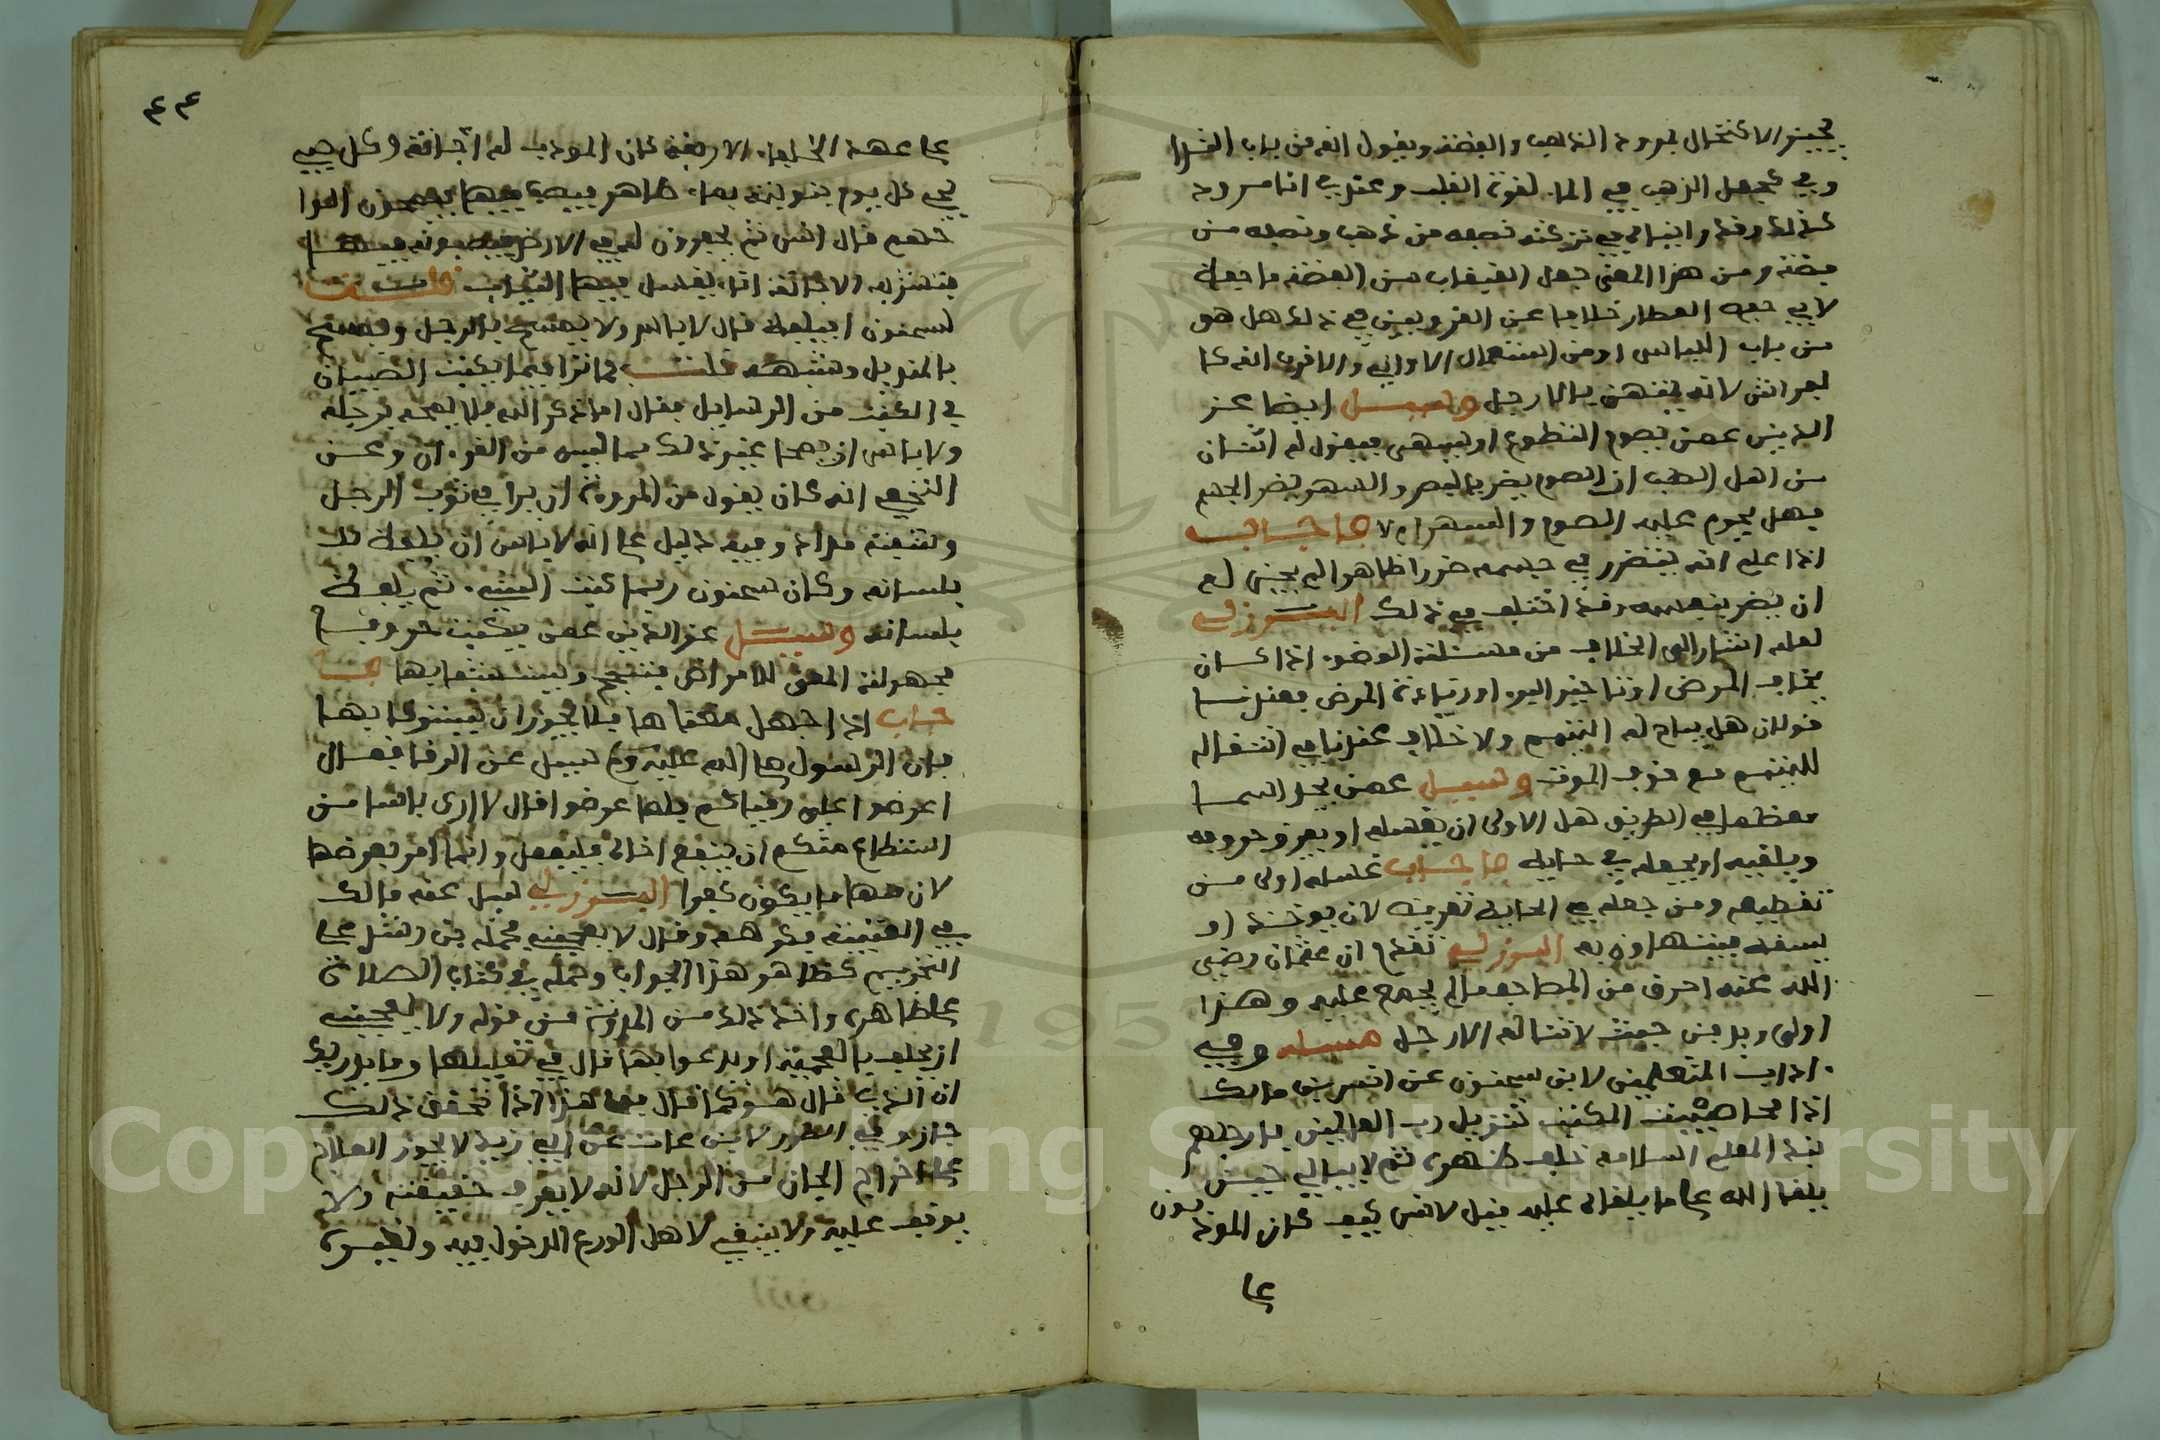 يجيز الاكتحال بمرود الذهب والفضة ويقول انه من باب التداوي
وفي جعل الذهب في الماء لقوة القلب وعندي انا مرود
كذلك وقد رايت الي في تركته نصفه من ذهب ونصفه من
فضة ومن هذا المعنى جعل القيقاب من الفضة ما جعله
لابي حفص العطار خلافا عن الغرويين في ذلك هل هو
من باب اللباس او من استعمال الاواني والاقرب انه كا
لفراش لانه يمتهن بالارجل وسيل ايضا عز
الدين عمن يصوم التطوع او يسهر فيقول له انسان
من اهل الطب ان الصوم يضر بالبصر والسهر يضر الجسم
فهل يحرم عليه الصوم والسهر ام لا فاجاب
اذا علم انه يتضرر في جسمه ضررا ظاهرا لم يجز له
ان يضر بنفسه وقد اختلف في ذلك البرزلي
لعله اشار الى الخلاف من مسئلة الوضوء اذا كان
يخاف المرض او تاخير البرء او زيادة المرض فعندنا
قولان هل يباح له التيمم ولا خلاف عندنا في انتقاله
للتيمم مع خوف الموت وسيل عمن يجد اسما
معظما في الطريق هل الاولى ان يغسله او يفرق حروفه
ويلقيه او يجعله في حايط فاجاب غسله اولى من
تقطيعه ومن جعله في الحايط تعريضه لان يوخذ او
يسقط فيتهاون به البرزلي تقدم ان عثمان رضي
الله عنه احرق من المصاحف ما لم يجمع عليه وهذا
اولى وبد من حيث لا تناله الارجل مسئلة وفي
اداب المتعلمين لابن سحنون عن انس بن مالك
اذا محا صبيت المكتب تنزيل رب العالمين بارجلهم
نبذ المعلم السلامة خلف ظهره ثم لا يبالي حين
يلقا الله على ما يلقاه عليه قيل لانس كيف كان المود
بون
على
٤٤
على عهد الخلفاء الاربعة كان المودب له اجانة وكل صبي
يجي كل يوم بنوبته بماء طاهر فيصبه فيها فيمحون الوا
حهم قال انس ثم يحفرون له في الارض فيصبونه فيها
فينشف والاجانة اناء يغسل فيها الثياب قلت
لسحنون ايلعط قال لا باس ولا يمسح بالرجل ويمسح
بالمنديل وشبهه قلت فما ترا فيما يكتب الصبيان
في الكتف من الرسايل فقال اما ذكر الله فلا يمحه برجله
ولا باس ان يمحا غير ذلك مما ليس من القرءان وعن
النخعي انه كان يقول من المروة ان يرا في ثوب الرجل
وشفته مداد وفيه دليل على انه لا باس ان يلعط ذلك
بلسانه وكان سحنون ربما كتب الشيء ثم يلعطه
بلسانه وسيل عز الدين عمن يكتب حروفا
مجهولة المعنى للامراض فتنجح ويستشفا بها فا
جاب اذا جهل معناها فلا يجوز ان يسترقا بها
فان الرسول صلى الله عليه وسلم سيل عن الرقا فقال
اعرضوا علي رقياكم فلما عرضوا قال لا ارى باسا من
استطاع منكم ان ينفع اخاه فليفعل وانما امر بعرضها
لان منها ما يكون كفرا البرزلي سيل عنه مالك
في العتبية فكرهه وقال لا يعجبني فحمله بن رشد على
التحريم كظاهر هذا الجواب وحمله في كتاب الصلاة
على ظاهره واخذ ذلك من المدونة من قوله ولا يعجبني
ان يحلف بالعجمية او يدعوا بها قال في تعليلها وما يدريك
ان الذي قال هو كما قال فعلى هذا اذا تحقق ذلك
جاز وفي الطرر لابن عات عن ابي زيد لا يجوز العلاج
على اخراج الجان من الرجل لانه لا يعرف حقيقته ولا
يوقف عليه ولا ينبغي لاهل الورع الدخول فيه ولغيرهم